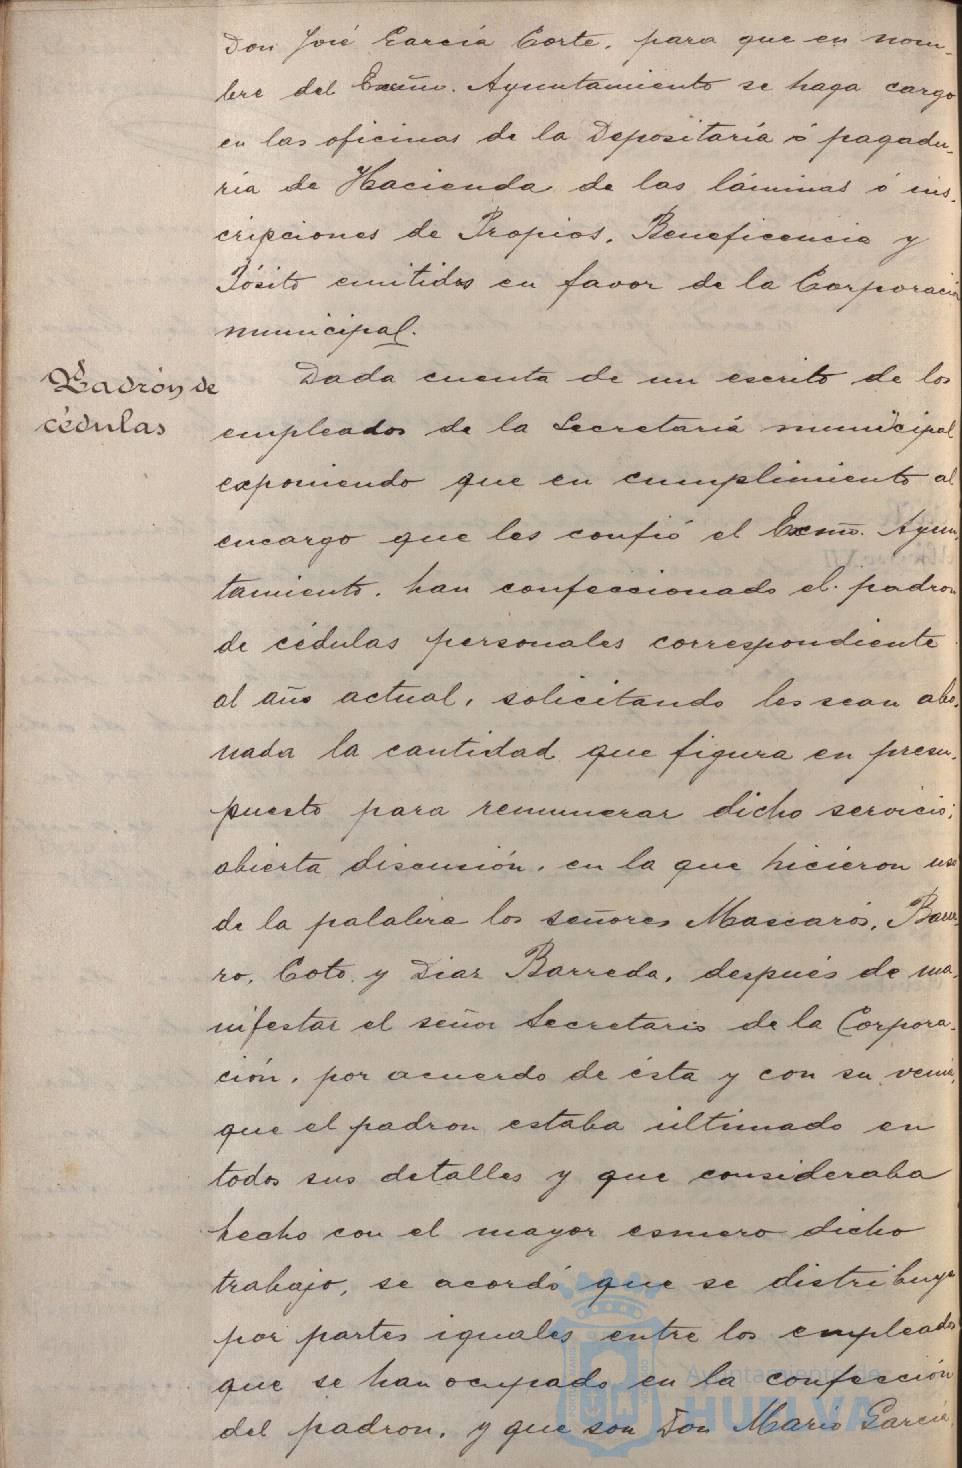 Don José García Corte, para que en nom-
bre del Excmo. Ayuntamiento se haga cargo
en las oficinas de la Depositaría ó pagadu-
ría de Hacienda de las láminas ó ins-
cripciones de Propios, Beneficencia y
Pósito emitidos en favor de la Corporación
municipal.
Padrón de
cédulas
Dada cuenta de un escrito de los
empleados de la Secretaría municipal
exponiendo que en cumplimiento al
encargo que les confió el Excmo. Ayun-
tamiento, han confeccionado el padron
de cédulas personales correspondiente
al año actual, solicitando les sean abo-
nada la cantidad que figura en presu-
puesto para remunerar dicho servicio;
abierta discusión, en la que hicieron uso
de la palabra los señores Mascarós, Barre-
ro, Coto y Diaz Barreda, después de ma-
nifestar el señor Secretario de la Corpora-
ción, por acuerdo de ésta y con su venia,
que el padron estaba ultimado en
todos sus detalles y que consideraba
hecho con el mayor esmero dicho
trabajo, se acordó que se distribuya
por partes iguales entre los empleados
que se han ocupado en la confección
del padron, y que son Don Mario García
Ayuntamiento de
HUELVA